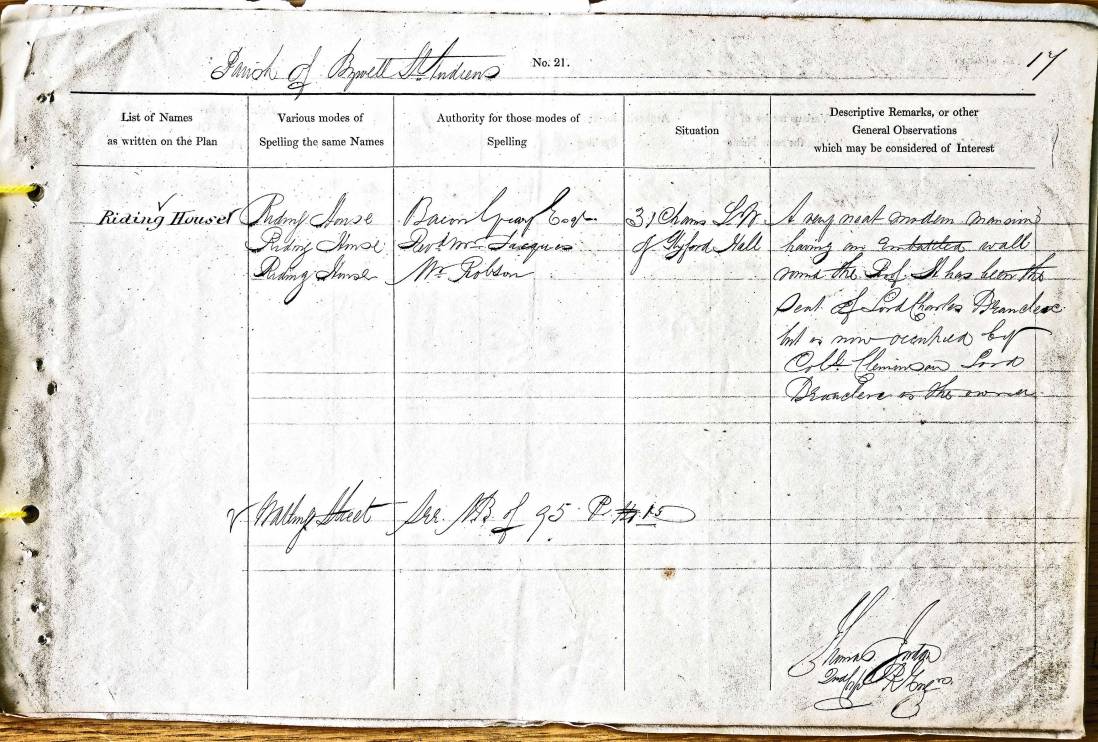 Parish of Bywell St. Andrews
No. 21.
17
List of Names
as written on the Plan
Various modes of
Spelling the same Names
Authority for those modes of
Spelling
Situation
Descriptive Remarks, or other
General Observations
which may be considered of Interest
Riding House
Riding House
Riding House
Riding House
Bacon Grey Esqr.
Revd. Mr. Jacques
Mr. Robson
3 Chains S.W.
of Styford Hall
A very neat modern mansion
having an Embattled wall
round the Roof. It has been the
Seat of Lord Charles
but is now occupied by
Lord
as the owner
Watling Street
See N.B. of 95 P. 15
Thomas Judge
2nd Corpl R Engrs.